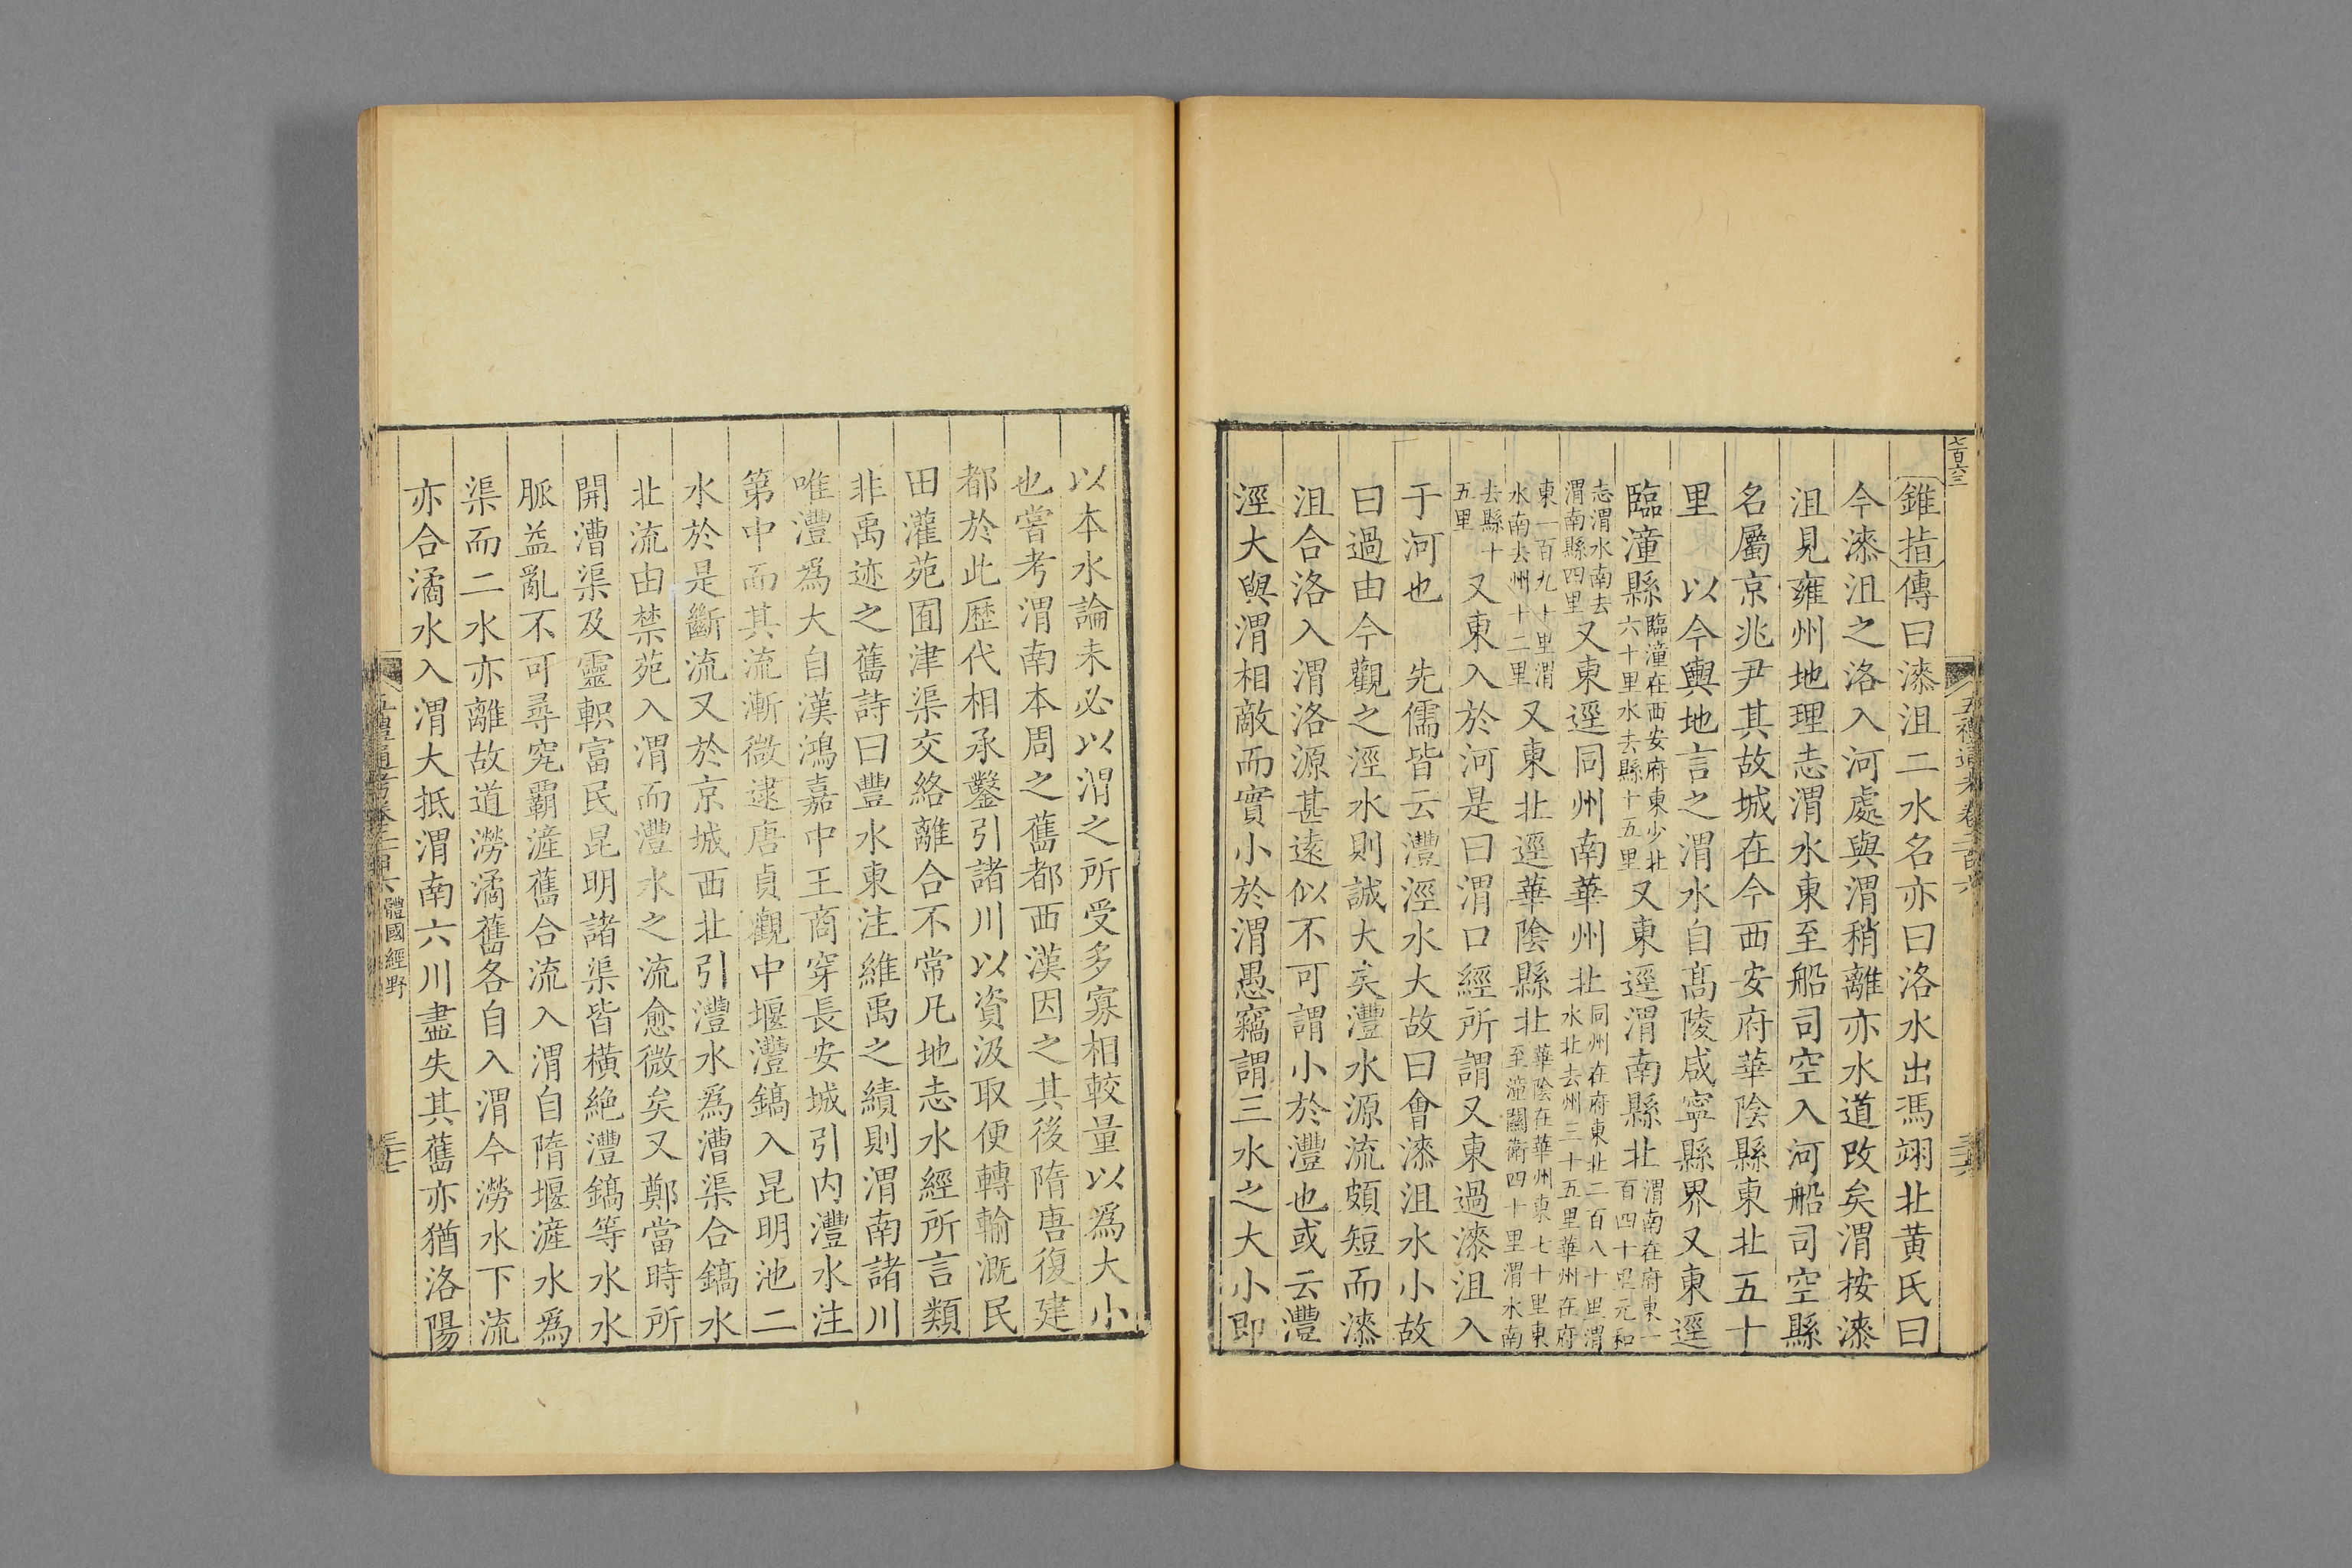 七百六三
五禮通考卷二百六
錐指傳曰漆沮二水名亦曰洛水出馮翊北黃氏曰
今漆沮之洛入河處與渭稍離亦水道改矣渭按漆
沮見雍州地理志渭水東至船司空入河船司空縣
名屬京兆尹其故城在今西安府華陰縣東北五十
里　以今輿地言之渭水自高陵咸寧縣界又東逕
臨潼縣臨潼在西安府東少北六十里水去縣十五里又東逕渭南縣北渭南在府東一百四十里元和
志渭水南去渭南縣四里又東逕同州南華州北同州在府東北二百八十里渭水北去州三十五里華州在府
東一百九十里渭水南去州十二里又東北逕華陰縣北華陰在華州東七十里東至潼關衛四十里渭水南
去縣十五里又東入於河是曰渭口經所謂又東過漆沮入
于河也　先儒皆云灃涇水大故曰會漆沮水小故
曰過由今觀之涇水則誠大矣灃水源流頗短而漆
沮合洛入渭洛源甚遠似不可謂小於灃也或云灃
涇大與渭相敵而實小於渭愚竊謂三水之大小即
以本水論未必以渭之所受多寡相較量以爲大小
也嘗考渭南本周之舊都西漢因之其後隋唐復建
都於此歷代相承鑿引諸川以資汲取便轉輸溉民
田灌苑囿津渠交絡離合不常凡地志水經所言類
非禹迹之舊詩曰豐水東注維禹之績則渭南諸川
唯灃爲大自漢鴻嘉中王商穿長安城引内灃水注
第中而其流漸微逮唐貞觀中堰灃鎬入昆明池二
水於是斷流又於京城西北引灃水爲漕渠合鎬水
北流由禁苑入渭而灃水之流愈微矣又鄭當時所
開漕渠及靈軹富民昆明諸渠皆橫絶灃鎬等水水
脈益亂不可尋究霸滻舊合流入渭自隋堰滻水爲
渠而二水亦離故道澇潏舊各自入渭今澇水下流
亦合潏水入渭大抵渭南六川盡失其舊亦猶洛陽
五禮通考卷二百六　體國經野